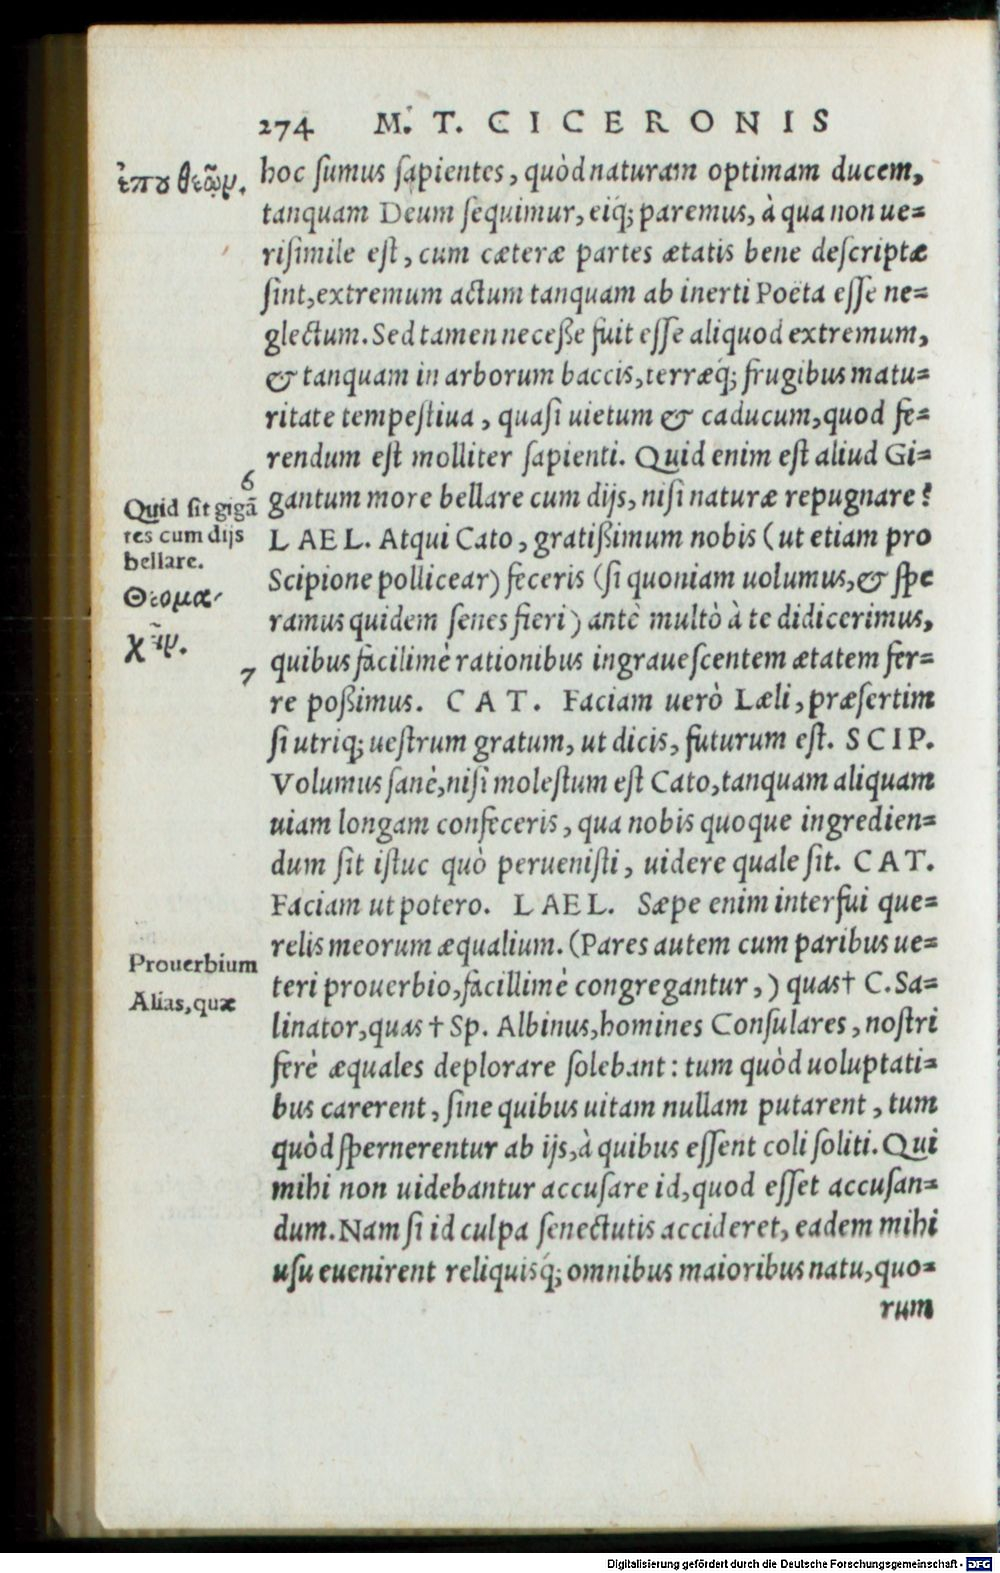 274 M. T. CICERONIS
hoc sumus sapientes, quòd naturam optimam ducem,
tanquam Deum sequimur, eiq́; paremus, à qua non ue=
risimile est, cum cæteræ partes ætatis bene descriptæ
sint, extremum actum tanquam ab inerti Poëta esse ne=
glectum. Sed tamen necesse fuit esse aliquod extremum,
& tanquam in arborum baccis, terræq́; frugibus matu=
ritate tempestiua, quasi uietum & caducum, quod fe=
rendum est molliter sapienti. Quid enim est aliud Gi=
6
gantum more bellare cum dijs, nisi naturæ repugnare?
LAEL. Atqui Cato, gratissimum nobis (ut etiam pro
Scipione pollicear) feceris (si quoniam uolumus, & spe
ramus quidem senes fieri) antè multò à te didicerimus,
7
quibus facilimè rationibus ingrauescentem ætatem fer=
re possimus. CAT. Faciam uerò Læli, præsertim
si utriq; uestrum gratum, ut dicis, futurum est. SCIP.
Volumus sanè, nisi molestum est Cato, tanquam aliquam
uiam longam confeceris, qua nobis quoque ingredien=
dum sit istuc quò peruenisti, uidere quale sit. CAT.
Faciam ut potero. LAEL. Sæpe enim interfui que=
relis meorum æqualium. (Pares autem cum paribus ue=
teri prouerbio, facillimè congregantur,) quas† C. Sa=
linator, quas† Sp. Albinus, homines Consulares, nostri
ferè æquales deplorare solebant: tum quòd uoluptati=
bus carerent, sine quibus uitam nullam putarent, tum
quòd spernerentur ab ijs, à quibus essent coli soliti. Qui
mihi non uidebantur accusare id, quod esset accusan=
dum. Nam si id culpa senectutis accideret, eadem mihi
usu euenirent reliquisq́; omnibus maioribus natu, quo=
rum
Quid sit gigā
tes cum dijs
bellare.
Θεομα-
χῆιν.
Prouerbium
Alias, quæ
Digitalisierung gefördert durch die Deutsche Forschungsgemeinschaft - DFG